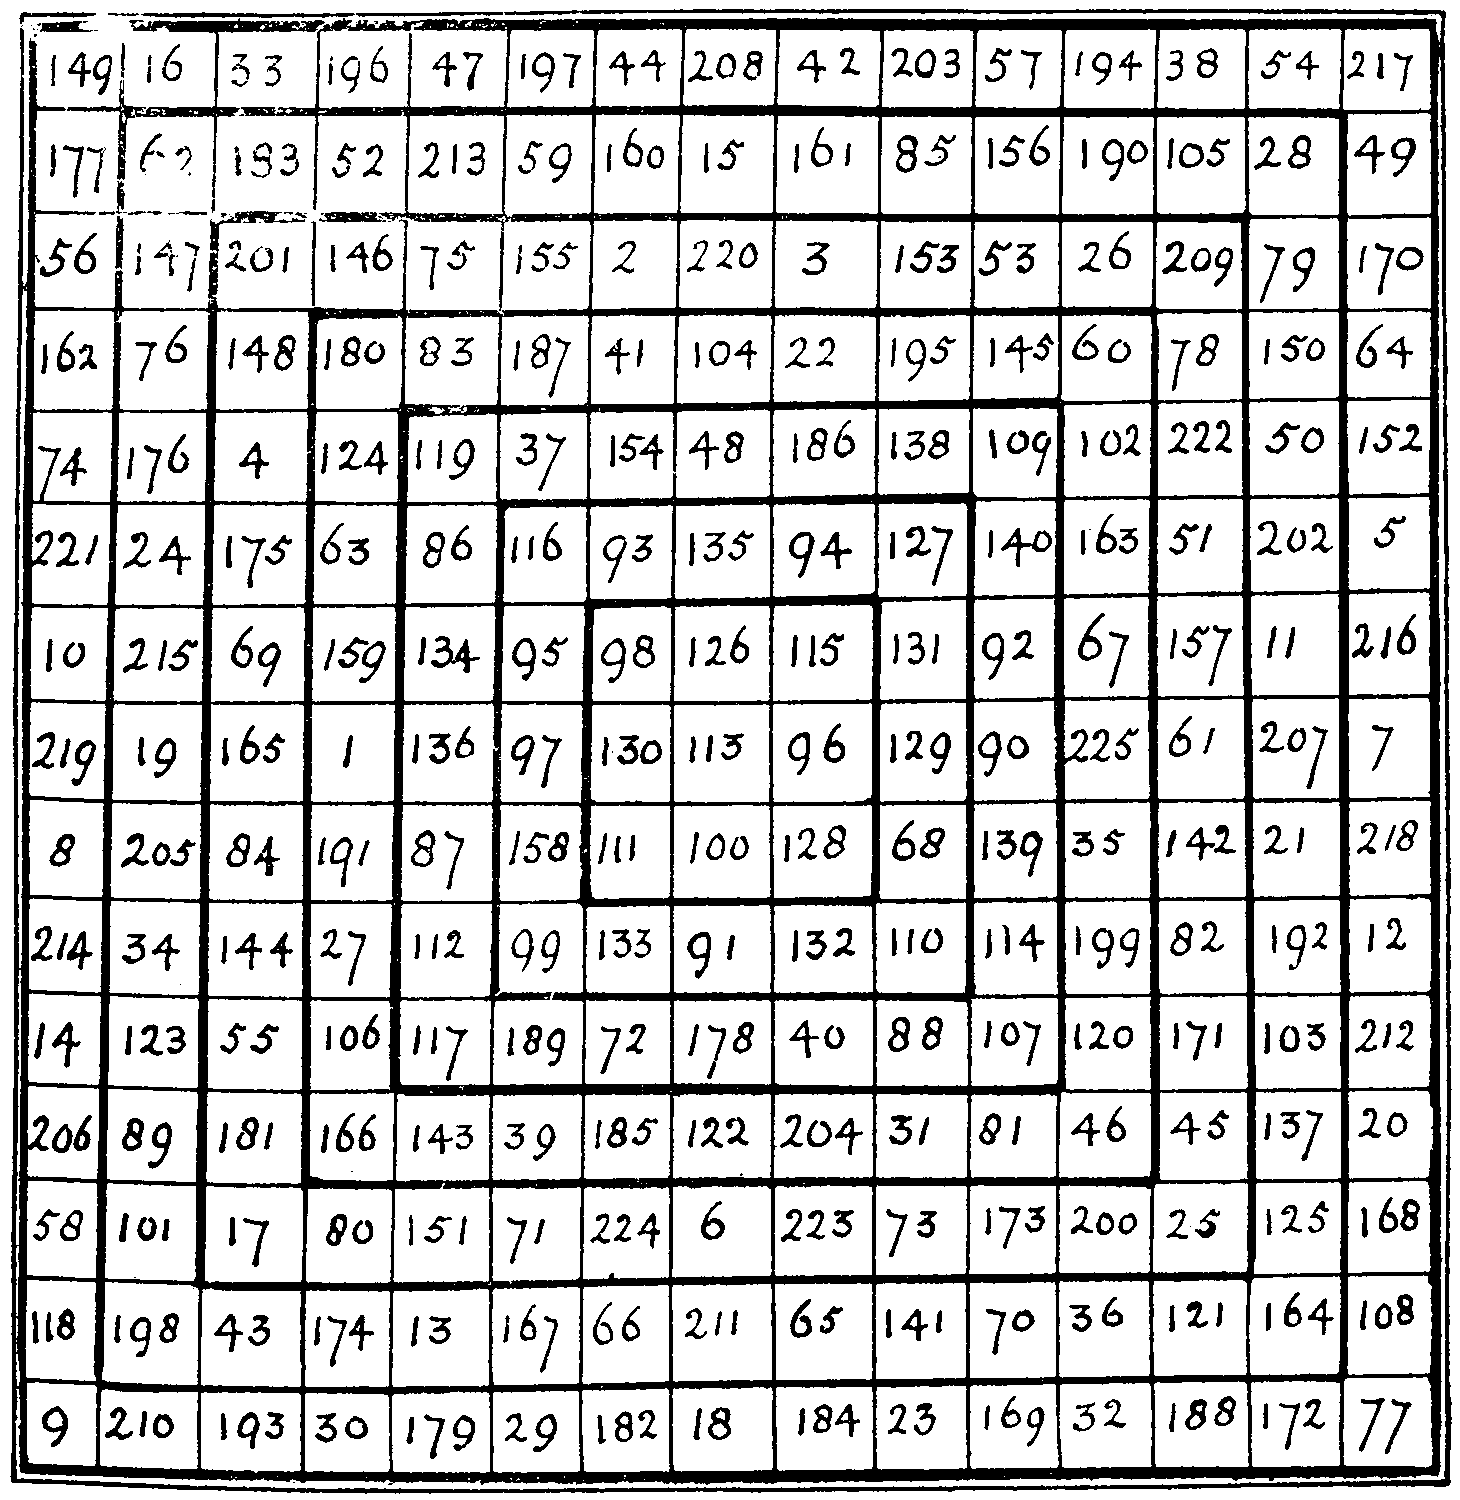 149 16 33 196 47 197 44 208 42 203 57 194 38 54 217
177 62 183 52 213 59 160 15 161 85 156 190 105 28 49
56 147 201 146 75 155 2 220 3 153 53 26 209 79 170
162 76 148 180 83 187 41 104 22 195 145 60 78 150 64
74 176 4 124 119 37 154 48 186 138 109 102 222 50 152
221 24 175 63 86 116 93 135 94 127 140 163 51 202 5
10 215 69 159 134 95 98 126 115 131 92 67 157 11 216
219 19 165 1 136 97 130 113 96 129 90 225 61 207 7
8 205 84 191 87 158 111 100 128 68 139 35 142 21 218
214 34 144 27 112 99 133 91 132 110 114 199 82 192 12
14 123 55 106 117 189 72 178 40 88 107 120 171 103 212
206 89 181 166 143 39 185 122 204 31 81 46 45 137 20
58 101 17 80 151 71 224 6 223 73 173 200 25 125 168
118 198 43 174 13 167 66 211 65 141 70 36 121 164 108
9 210 193 30 179 29 182 18 184 23 169 32 188 172 77